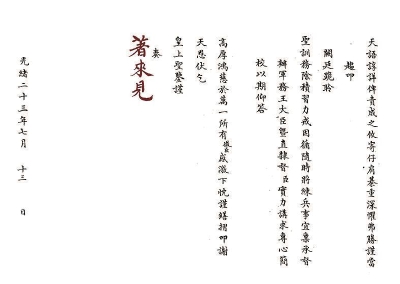 天語諄詳俾責成之攸寄仔肩綦重深懼弗勝謹當
趨叩
闕廷跪聆
聖訓務除積習力戒因循隨時將練兵事宜稟承督
辦軍務王大臣暨直隸督臣實力講求專心簡
校以期仰答
高厚鴻慈於萬一所有微臣感激下忱謹繕摺叩謝
天恩伏乞
皇上聖鑒謹
奏
著來見
光緒二十三年七月 十三 日